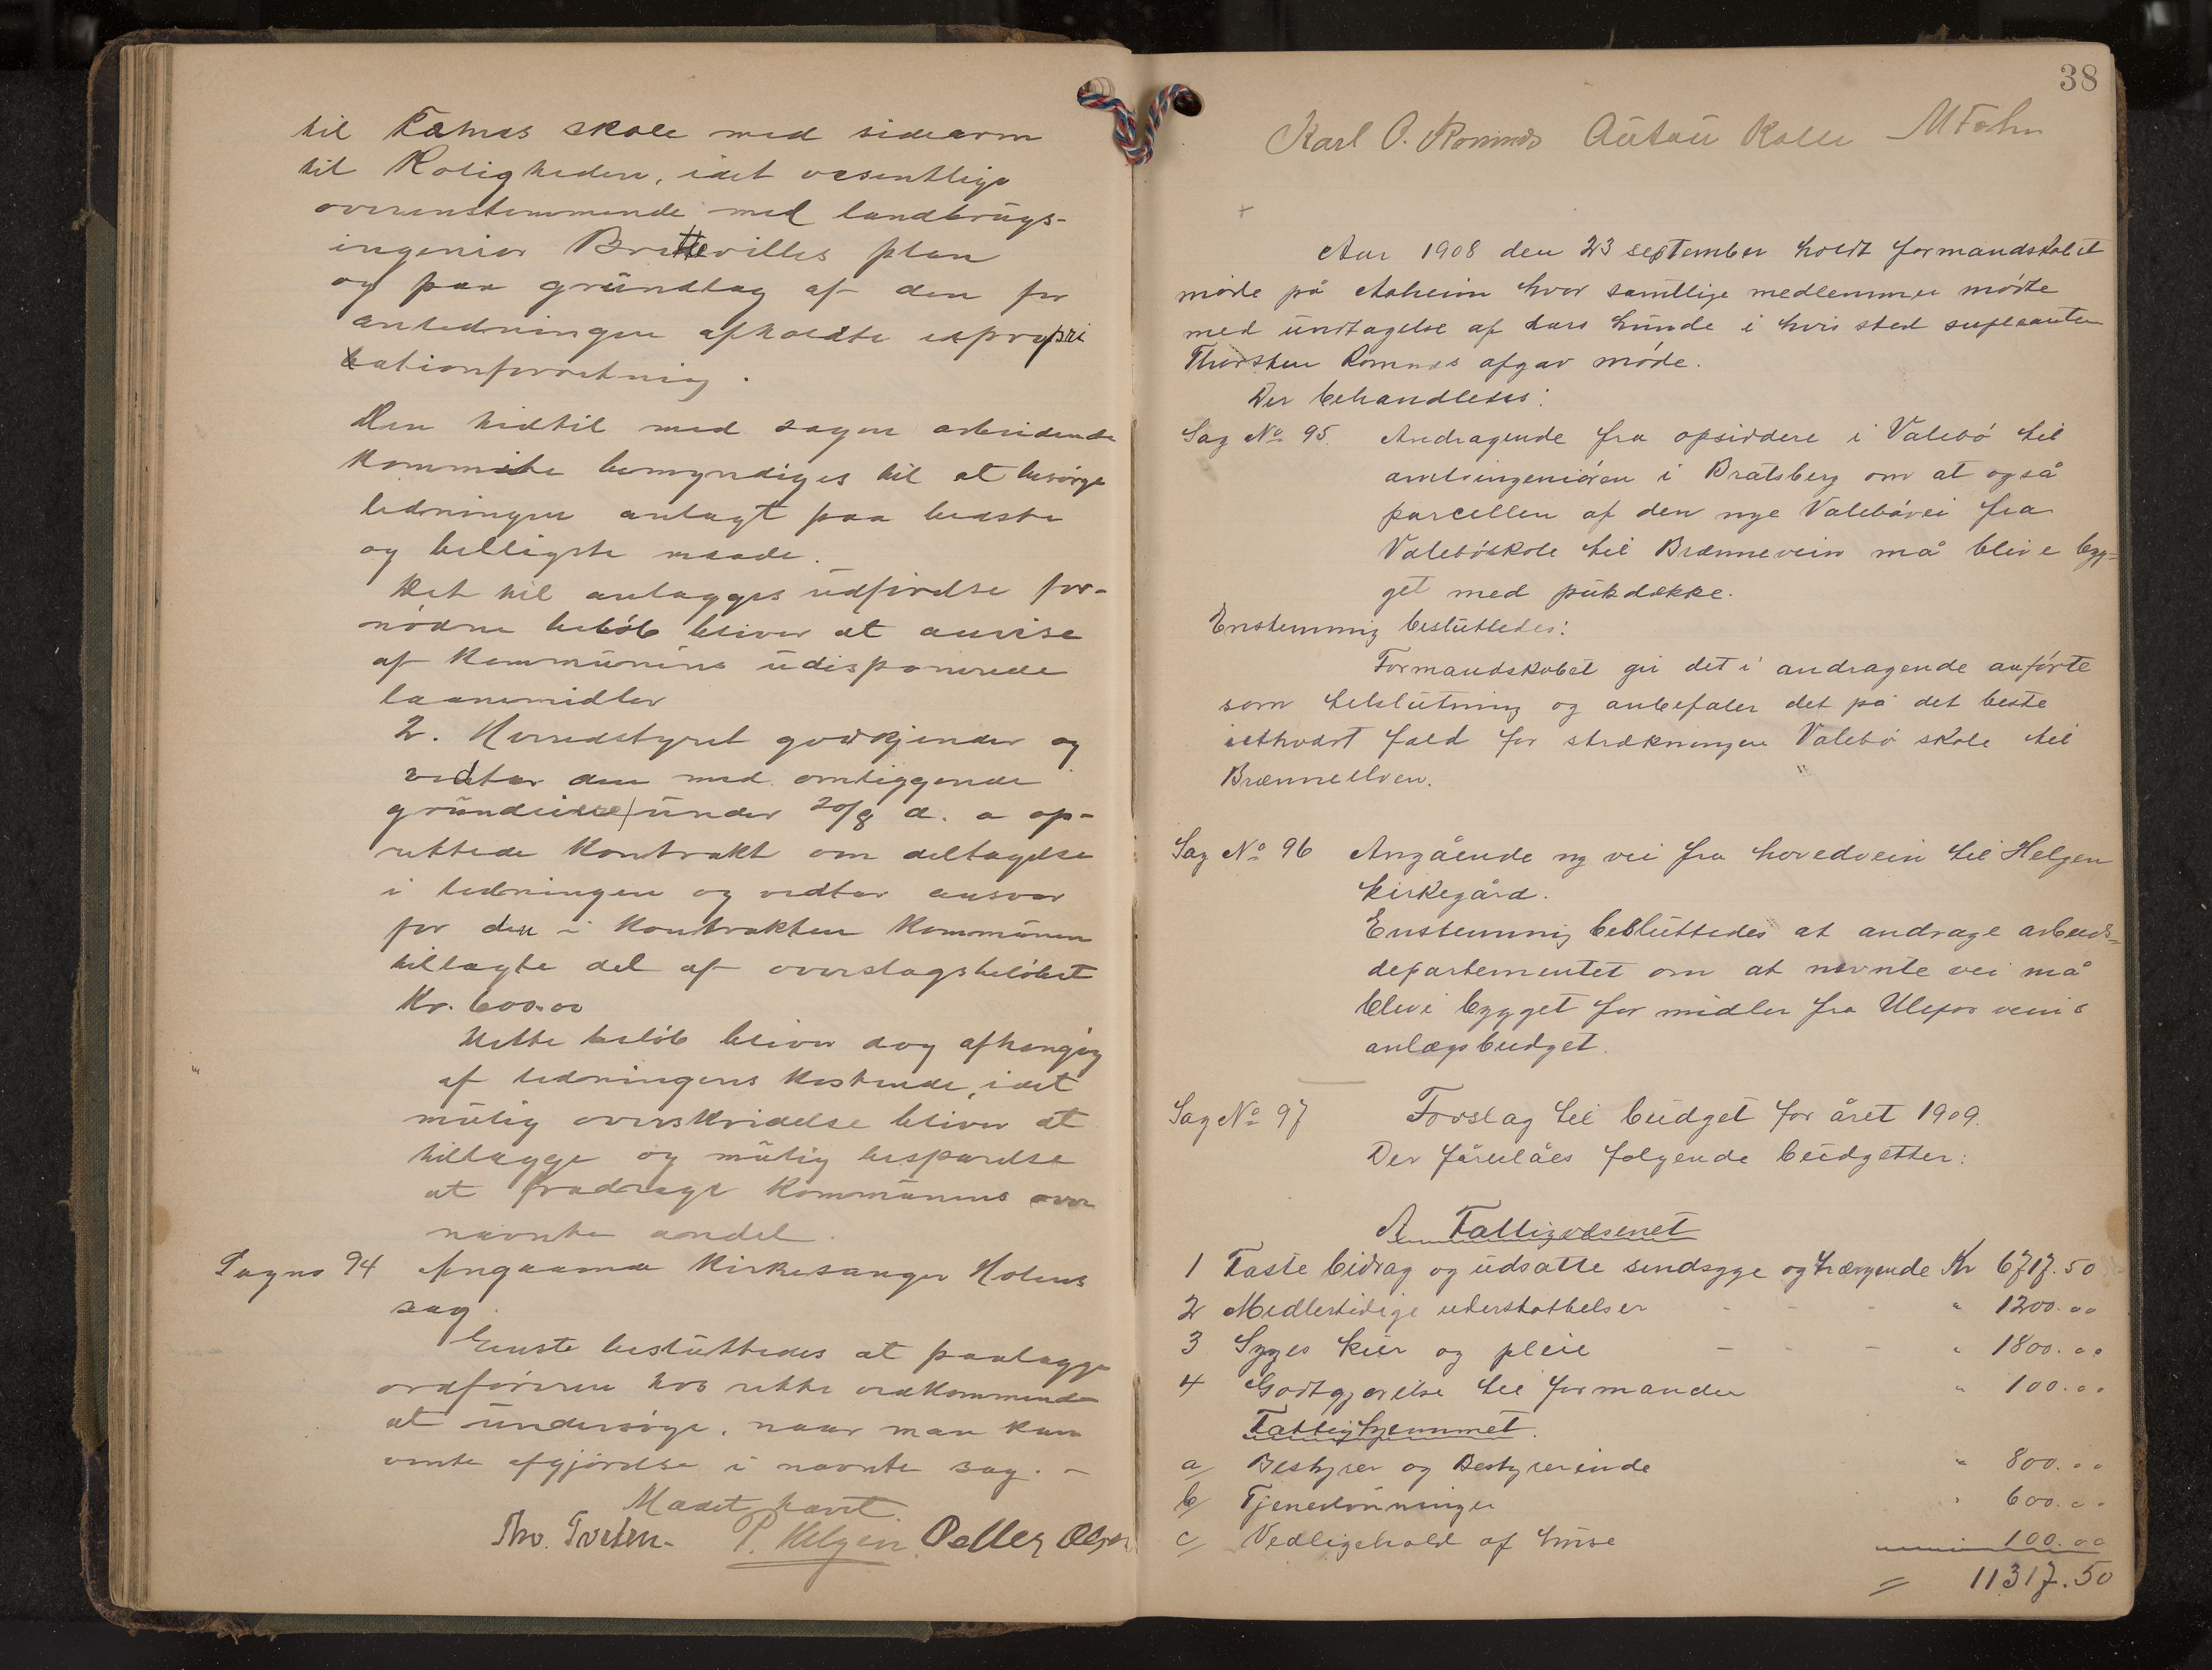 til Tahnes skole med sidearm
til Roligheden, idet væsentlige
overenstemmende med landbrugs-
ingeniør Brettevilles plan
og paa grundlag af den for
anledningen afholdte expropri
ationforretning.
Den hidtil med sagen arbeidende
kommite bemyndiges til at besørge
ledningen anlagt paa bedste
og billigste maade.
Det til anlægges udførelse for-
nødne beløb bliver at anvise
af kommunens udisponerede
laanemidler
2. Herredstyret godkjender og
vedtar den med omliggende
grundeiere under 20/8 d. a op-
rettede kontrakt om deltagelse
i ledningen og vedtar ansvar
for den i kontrakten kommunen
tillagte del af overslagsbeløbet
Kr. 600.00
Dette beløb bliver dog afhængig
af ledningens kostende, idet
mulig overskridelse bliver at
tillægge og mulig besparelse
at fradrage kommunens oven
nævnte andel.
Sagno 94 Angaaende Kirkesanger Holms
sag.
Enste besluttedes at paalægge
ordføreren hos rette vedkommende
at undersøge, naar man kan
vente afgjørelse i nævnte sag. -
Mødet hævet.
Tho. Tveten. P. Helgen. Peller Olsen
38
Karl O. Romnes Anton Kolle M Fahn
Aar 1908 den 23 september holdt formandskabet
møde på Aaheim hvor samtlige medlemmer mødte
med undtagelse af Lars Lunde i hvis sted supleanten
Thorsten Romnes afgav møde.
Der behandledes:
Sag No 95. Andragende fra opsiddere i Valebø til
amtsingeniøren i Bratsberg om at også
parcellen af den nye Valebøvei fra
Valebøskole til Brænnevein må blive byg-
get med pukdække.
Enstemmig besluttedes:
Formandskabet gir det i andragende anførte
som tilslutning og anbefaler det på det beste
iethvært fald for strækningen Valebø skole til
Brænneelven.
Sag No 96 Angående ny vei fra hovedvein til Helgen
kirkegård.
Enstemmig besluttedes at andrage arbeids-
departementet om at nevnte vei må
blive bygget for midler fra Ulefos veiis
anlægsbudget.
Sag No 97 Forslag til budget for året 1909.
Der förelåes følgende budgetter:
A Fattigvæsenet
1 Faste bidrag og udsatte sindsyge og trængende Kr 6717.50
2 Medlertidige understøttelser - - - " 1200.00
3 Syges kur og pleie - - - " 1800.00
4 Godtgjørelse til formanden " 100.00
Fattighjemmet
a/ Bestyrer og Bestyrerinde " 800.00
b/ Tjenerlønninger " 600.00
c/ Vedligehold af huse " 100.00
= 11317.50